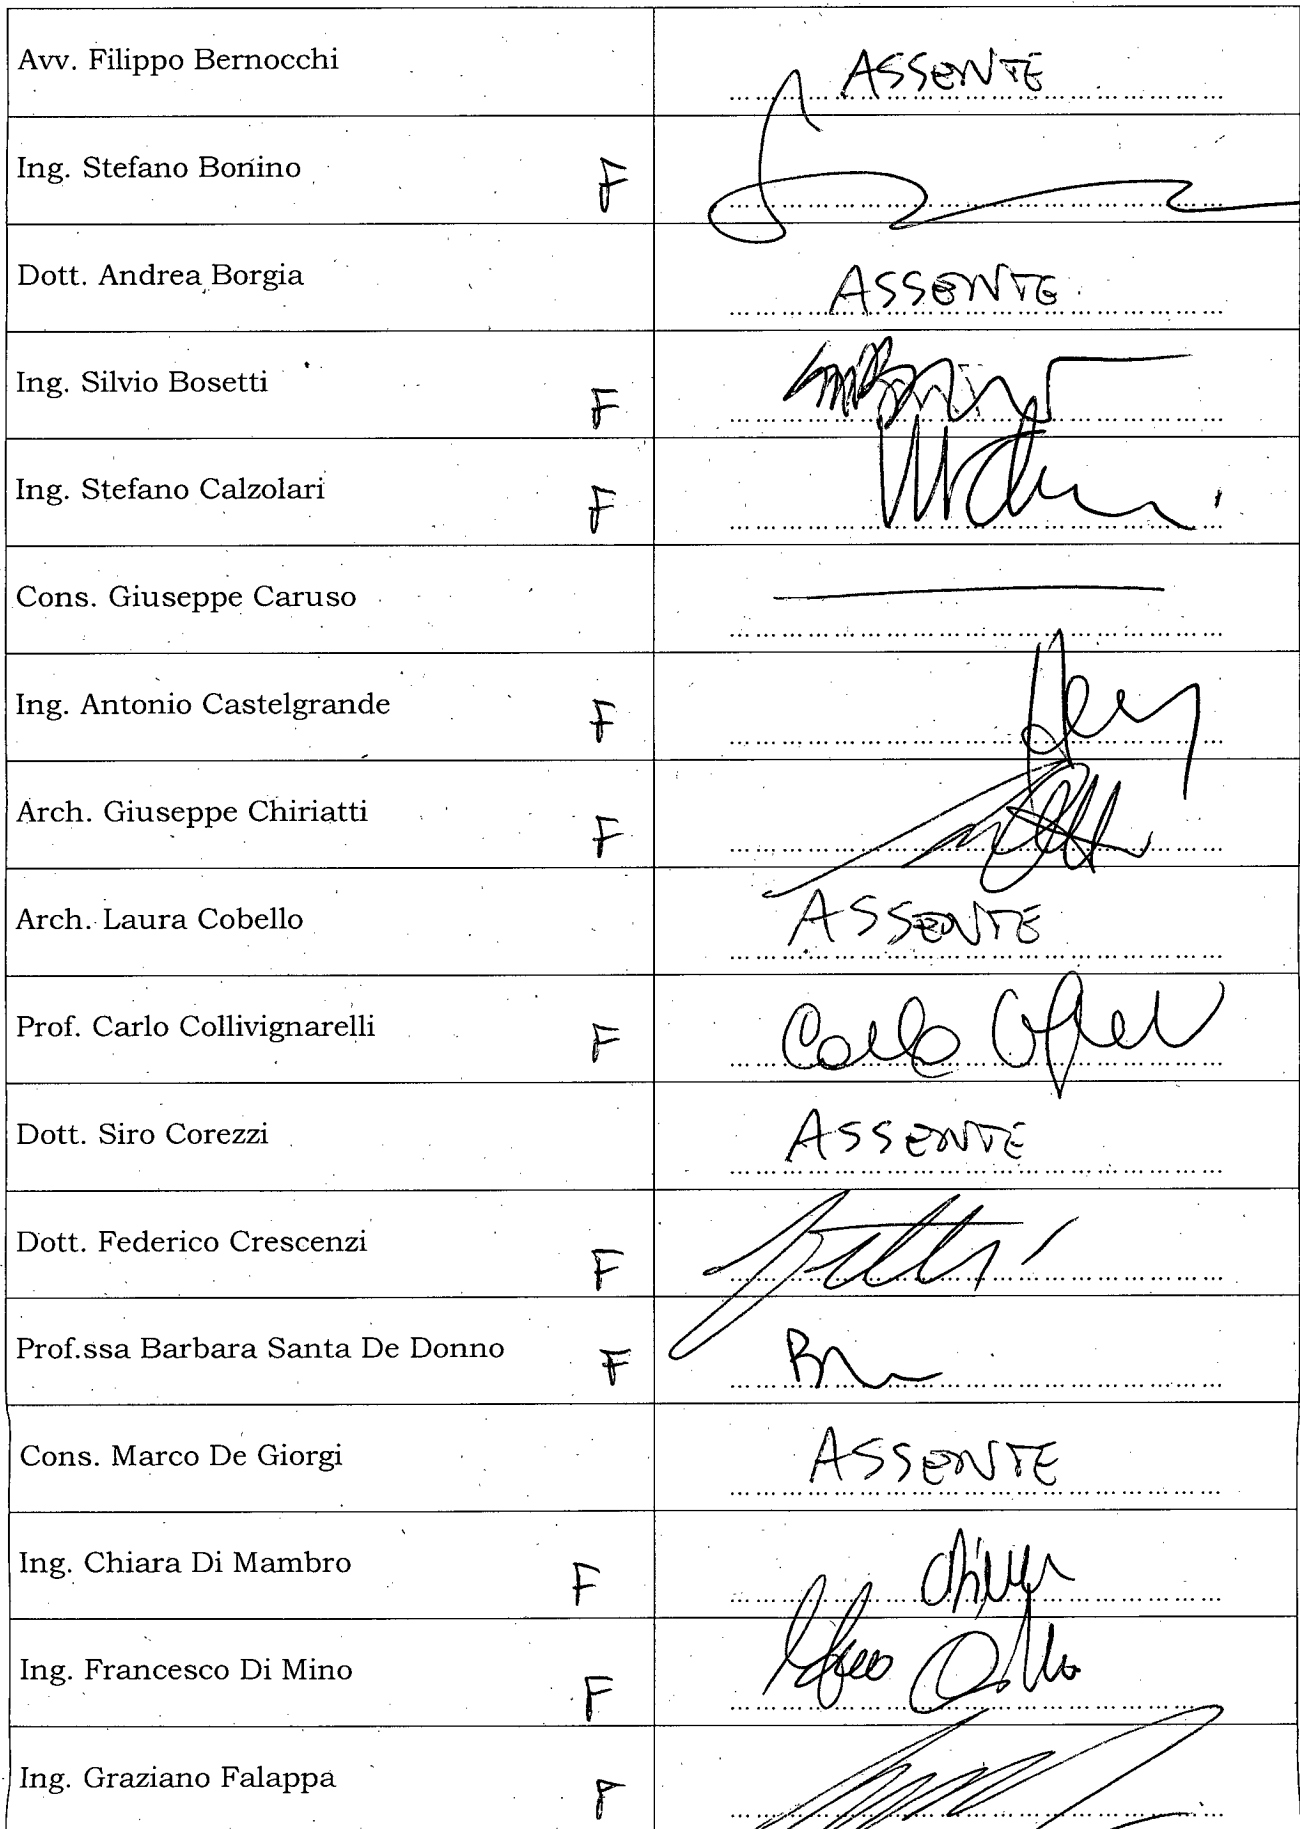 Avv. Filippo Bernocchi ASSENTE
Ing. Stefano Bonino F
Dott. Andrea Borgia ASSENTE
Ing. Silvio Bosetti F
Ing. Stefano Calzolari F
Cons. Giuseppe Caruso
Ing. Antonio Castelgrande F
Arch. Giuseppe Chiriatti F
Arch. Laura Cobello ASSENTE
Prof. Carlo Collivignarelli F Carlo
Dott. Siro Corezzi ASSENTE
Dott. Federico Crescenzi F
Prof.ssa Barbara Santa De Donno F
Cons. Marco De Giorgi ASSENTE
Ing. Chiara Di Mambro F
Ing. Francesco Di Mino F
Ing. Graziano Falappa F